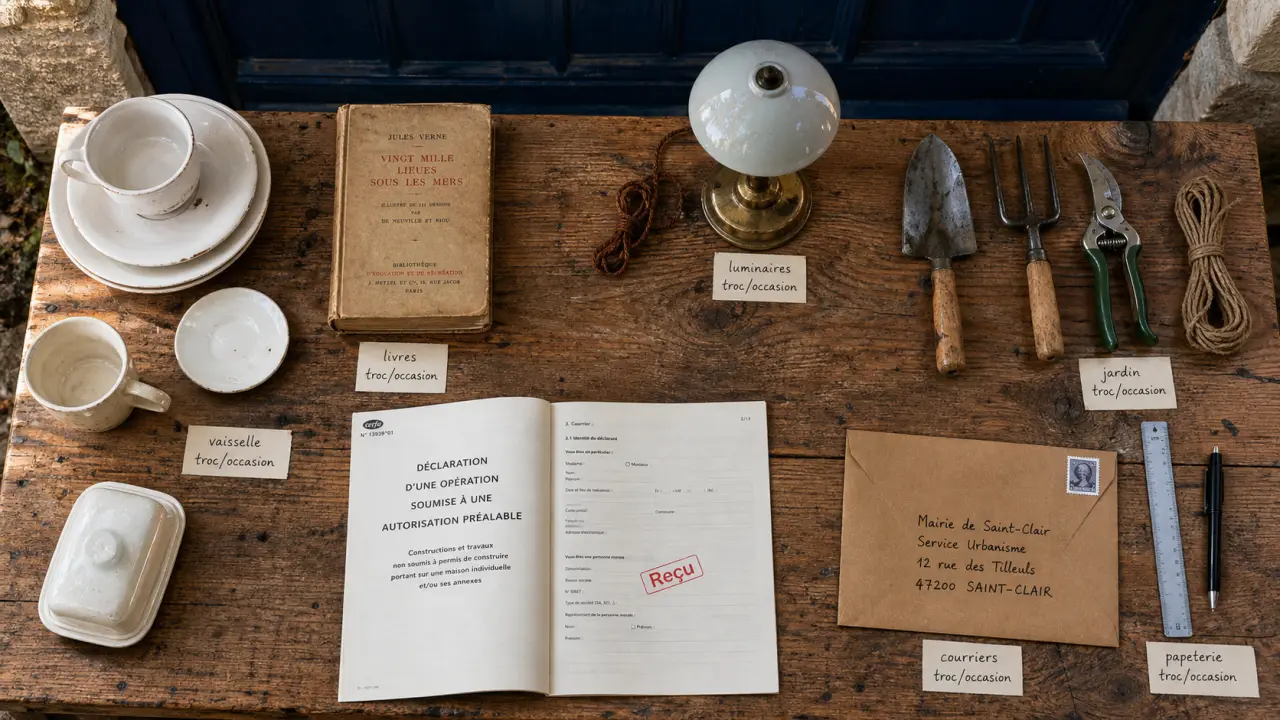 JULES VERNE
VINGT MILLE
LIEUES
SOUS LES MERS
ILLUSTRÉ DE 111 DESSINS
PAR
DE NEUVILLE ET RIOU
BIBLIOTHÈQUE
D'ÉDUCATION ET DE RÉCRÉATION
J. HETZEL ET Cie, 18, RUE JACOB
PARIS
livres
troc/occasion
luminaires
troc/occasion
jardin
troc/occasion
vaisselle
troc/occasion
cerfa
N° 13939*01
DÉCLARATION
D'UNE OPÉRATION
SOUMISE À UNE
AUTORISATION PRÉALABLE
Constructions et travaux
non soumis à permis de construire
portant sur une maison individuelle
et/ou ses annexes
2. Courrier :
2.1 Identité du déclarant
Vous êtes un particulier :
Madame :
Monsieur
Commune :
Vous êtes une personne morale
Dénomination :
Raison sociale :
N° SIRET :
Nom :
Prénom :
Reçu
Mairie de Saint-Clair
Service Urbanisme
12 rue des Tilleuls
47200 SAINT-CLAIR
courriers
troc/occasion
papeterie
troc/occasion